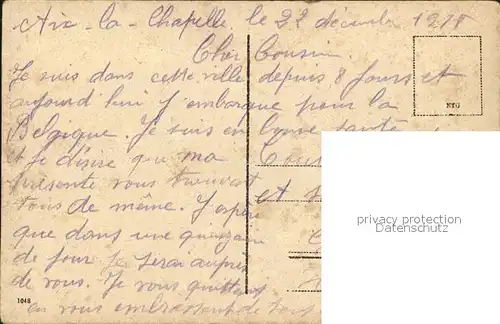 Aix-la-Chapelle, le 22 décembre 1918
Cher Cousin.
Je suis dans cette ville depuis 8 jours et
aujourd'hui j'embarque pour la
NTG
Belgique. Je suis en bonne santé
et je désire que ma
présente vous trouvent
et
tous de même. J'espère
privacy protection
Datenschutz
que dans une quinzaine
de jour je serai auprès
de vous. Je vous quittant
1048
en vous embrassant de tous